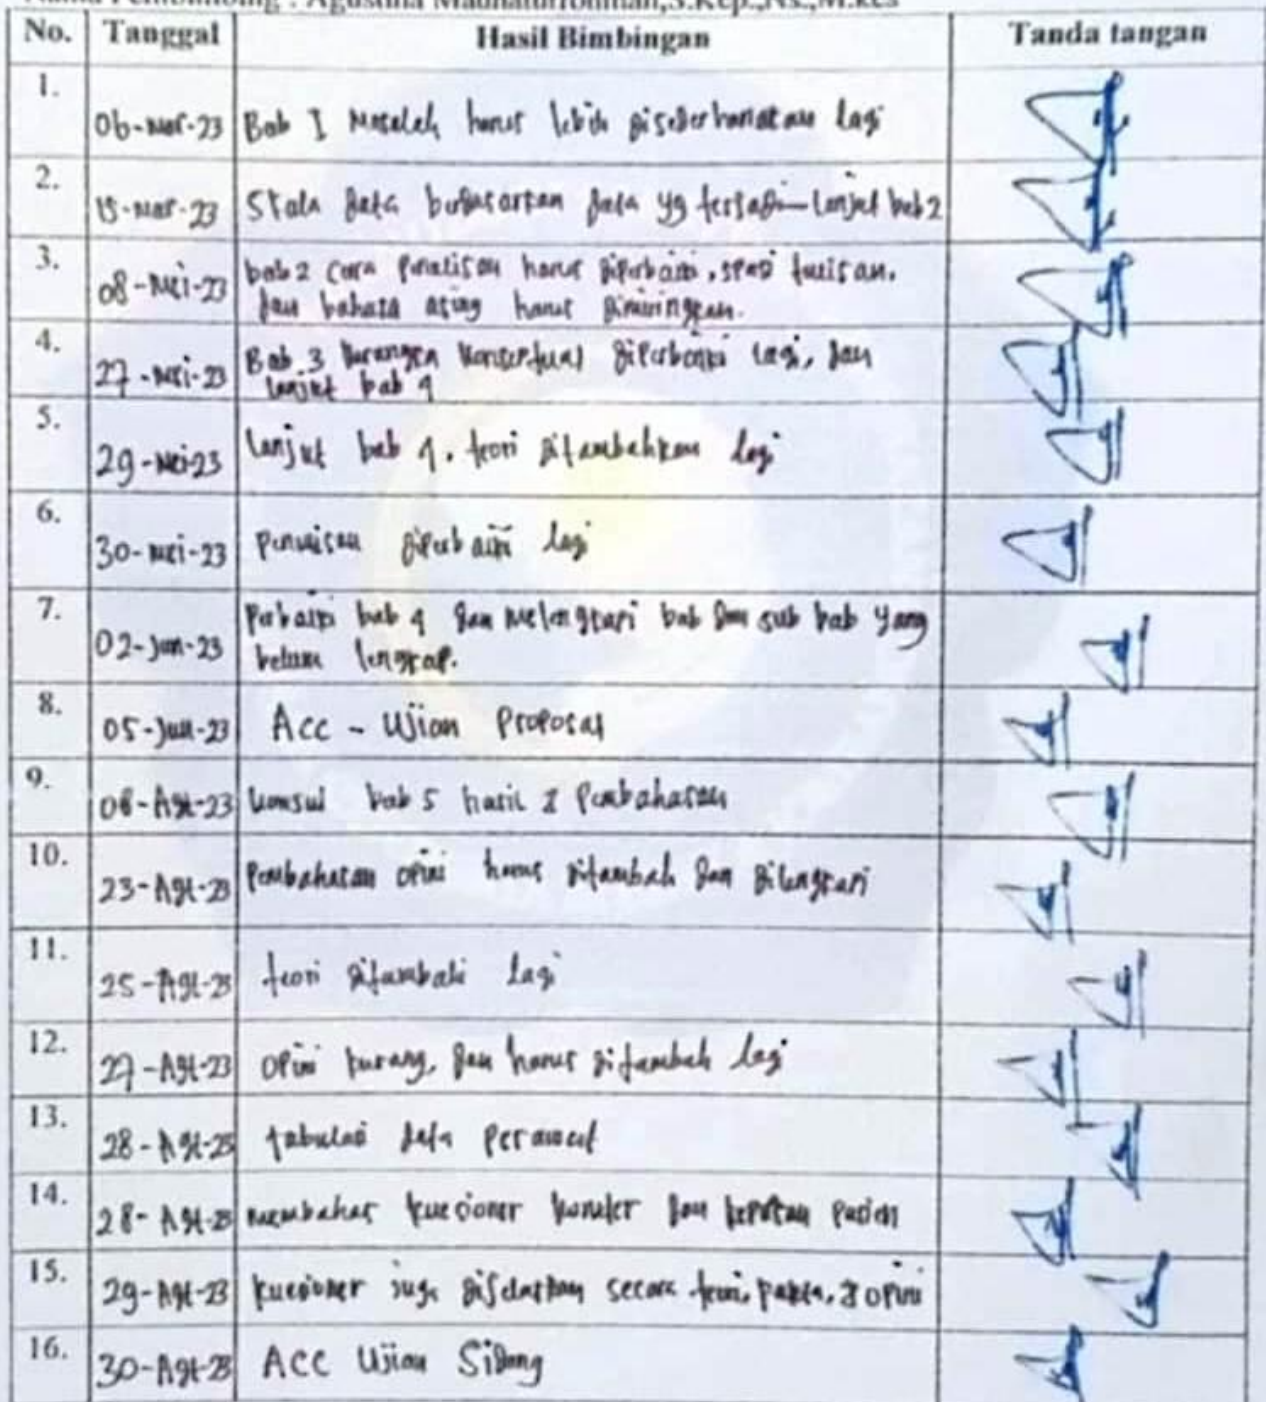 Nama Pembimbing : Agustina Maunaturrohmah,S.Kep.,Ns.,M.kes
No. Tanggal Hasil Bimbingan Tanda tangan
1. 06-Mar-23 Bab I Masalah harus lebih disederhanakan lagi
2. 15-Mar-23 Skala data berdasarkan data yg tersaji-lanjut bab 2
3. 08-Mei-23 bab 2 cara penulisan harus diperbaiki, spasi tulisan,
dan bahasa asing harus dimiringkan.
4. 27-Mei-23 Bab 3 kerangka konseptual diperbaiki lagi, dan
lanjut bab 4
5. 29-Mei-23 lanjut bab 4. teori ditambahkan lagi
6. 30-Mei-23 Penulisan diperbaiki lagi
7. 02-Jun-23 Perbaiki bab 4 dan melengkapi bab dan sub bab yang
belum lengkap.
8. 05-Jun-23 Acc - Ujian Proposal
9. 08-Agt-23 konsul bab 5 hasil & Pembahasan
10. 23-Agt-23 Pembahasan opini harus ditambah dan dilengkapi
11. 25-Agt-23 teori ditambah lagi
12. 27-Agt-23 Opini kurang, dan harus ditambah lagi
13. 28-Agt-23 tabulasi data Perawat
14. 28-Agt-23 membahas kuesioner dan pasien
15. 29-Agt-23 kuesioner juga dijelaskan secara teori, fakta, & opini
16. 30-Agt-23 ACC Ujian Sidang